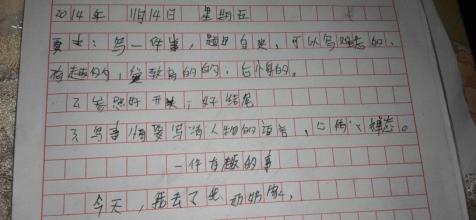 2014年 11月14日 星期五
要求：写一件事，题目自来，可以写难忘的、
有趣的，受教育的的，后悔的。
2、注意好开头，好结尾
3、写事情要写清人物的语言、心情、神态。
一件有趣的事
今天，我去了先奶奶家，